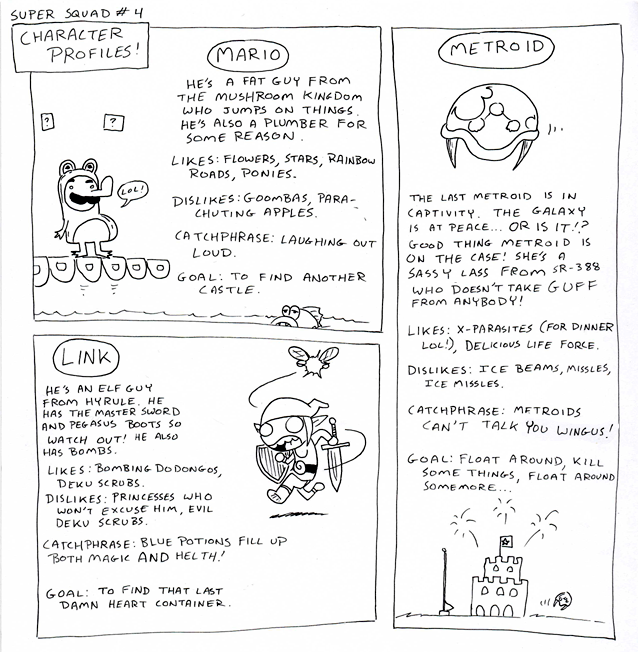 SUPER SQUAD #4
CHARACTER
PROFILES!
MARIO
HE'S A FAT GUY FROM
THE MUSHROOM KINGDOM
WHO JUMPS ON THINGS.
HE'S ALSO A PLUMBER FOR
SOME REASON.
LIKES: FLOWERS, STARS, RAINBOW
ROADS, PONIES.
DISLIKES: GOOMBAS, PARA-
CHUTING APPLES.
CATCHPHRASE: LAUGHING OUT
LOUD.
GOAL: TO FIND ANOTHER
CASTLE.
?
?
LOL!
METROID
THE LAST METROID IS IN
CAPTIVITY. THE GALAXY
IS AT PEACE... OR IS IT!?
GOOD THING METROID IS
ON THE CASE! SHE'S A
SASSY LASS FROM SR-388
WHO DOESN'T TAKE GUFF
FROM ANYBODY!
LIKES: X-PARASITES (FOR DINNER
LOL!), DELICIOUS LIFE FORCE.
DISLIKES: ICE BEAMS, MISSLES,
ICE MISSLES.
CATCHPHRASE: METROIDS
CAN'T TALK YOU WINGUS!
GOAL: FLOAT AROUND, KILL
SOME THINGS, FLOAT AROUND
SOMEMORE...
LINK
HE'S AN ELF GUY
FROM HYRULE. HE
HAS THE MASTER SWORD
AND PEGASUS BOOTS SO
WATCH OUT! HE ALSO
HAS BOMBS.
LIKES: BOMBING DODONGOS,
DEKU SCRUBS.
DISLIKES: PRINCESSES WHO
WON'T EXCUSE HIM, EVIL
DEKU SCRUBS.
CATCHPHRASE: BLUE POTIONS FILL UP
BOTH MAGIC AND HELTH!
GOAL: TO FIND THAT LAST
DAMN HEART CONTAINER.